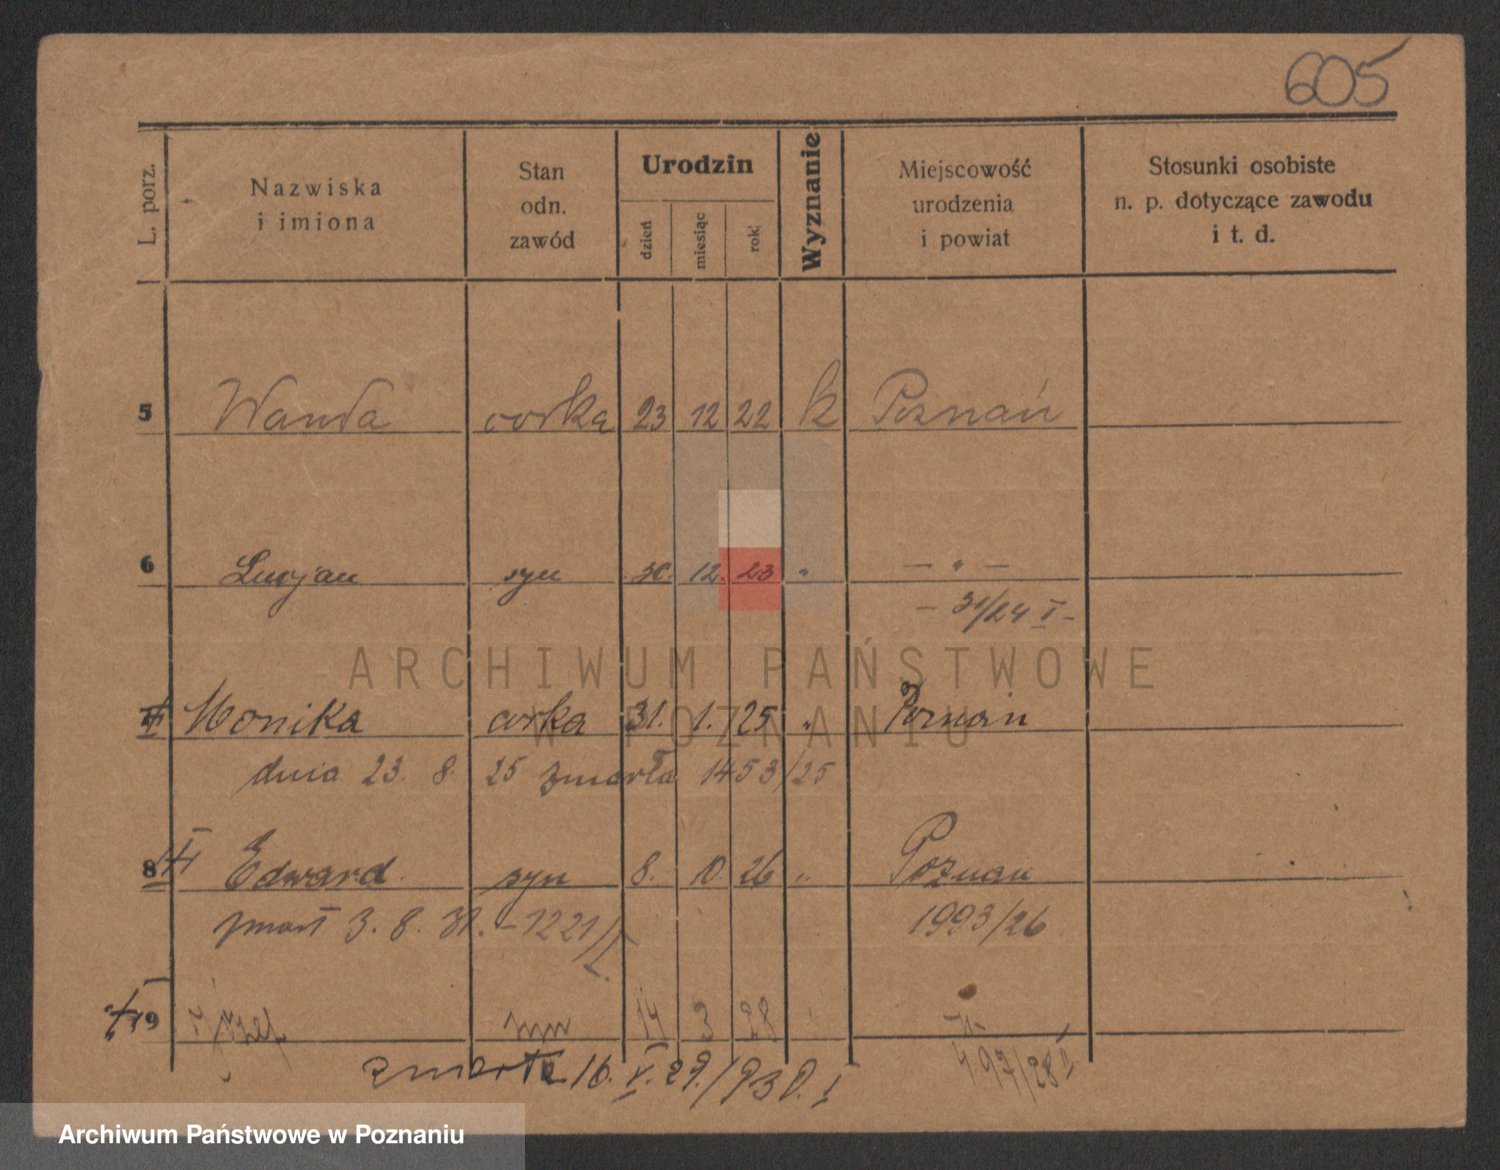 605
L. porz.
Nazwiska
i imiona
Stan
odn.
zawód
Urodzin
dzień
miesiąc
rok
Wyznanie
Miejscowość
urodzenia
i powiat
Stosunki osobiste
n. p. dotyczące zawodu
i t. d.
5 Wanda corka 23 12 22 k Poznań
6 Lucjan syn 30. 12. 23 " — " —
— 31/24 I —
ARCHIWUM PAŃSTWOWE
W POZNANIU
Monika corka 31. 1. 25 " Poznań
dnia 23. 8. 25 zmarła 1453/25
8 Edward syn 8. 10 26 " Poznan
zmarł 3. 8. 31. – 1221/I
1993/26
9 Józef syn 14 3 28 -"-
497/28 II
zmarł 16. V. 29. / 930. I
Archiwum Państwowe w Poznaniu